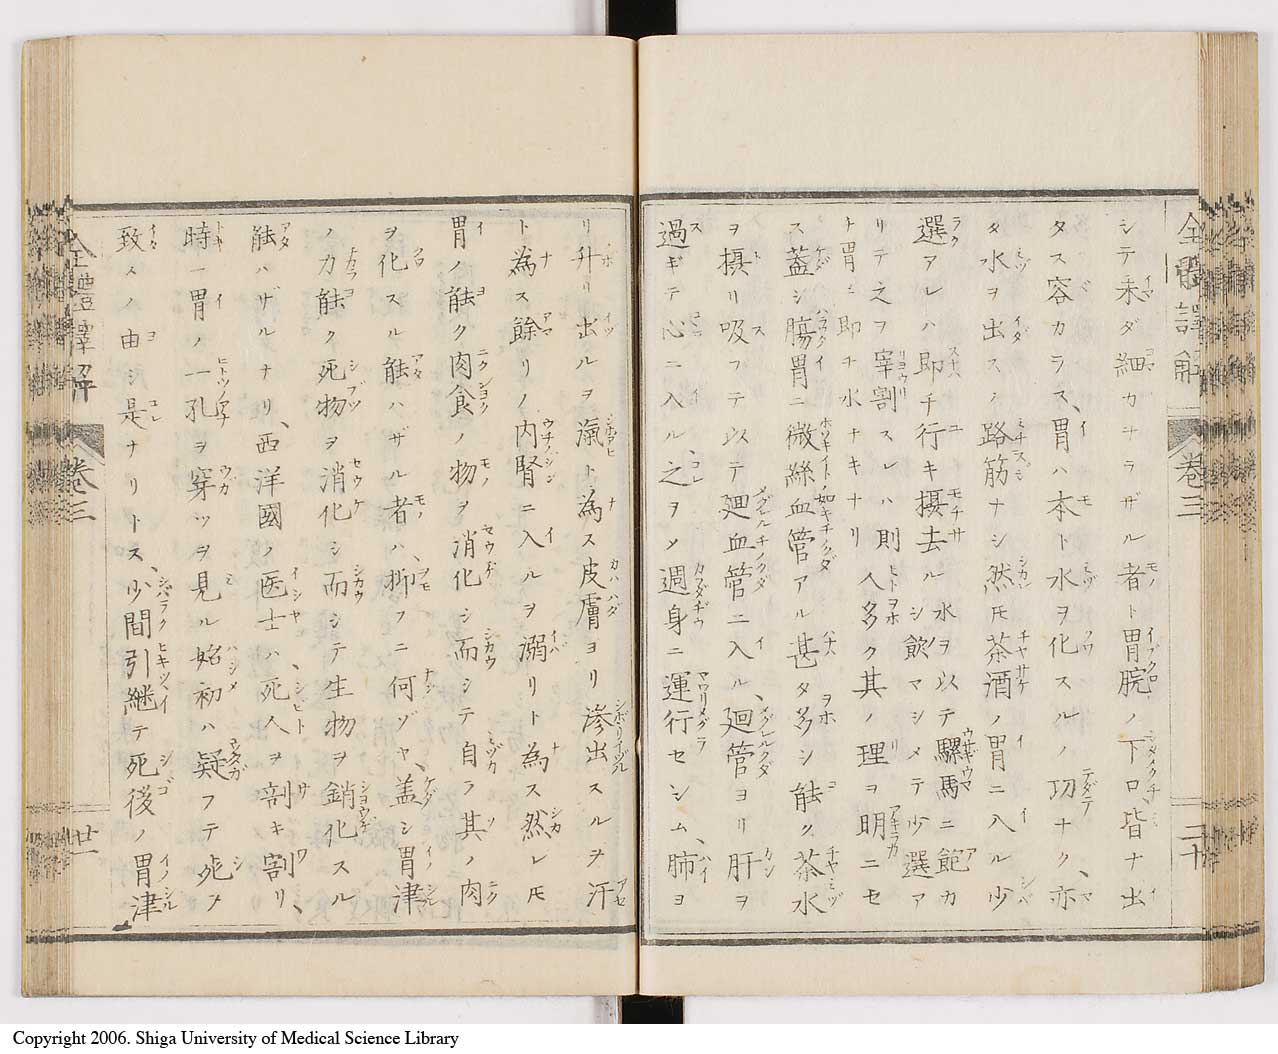 全體譯解
卷三
二十
シテ未ダ細カナラザル者ト胃脘ノ下口皆ナ出
タス容カラス、胃ハ本ト水ヲ化スルノ功ナク、亦
タ水ヲ出スノ路筋ナシ然𪜈茶酒ノ胃ニ入ル少
選アレハ即チ行キ摂去ル水ヲ以テ騾馬ニ飽カシ飲マシメテ少選ア
リテ之ヲ宰割スレハ則人多ク其ノ理ヲ明ニセ
ト胃ニ即ヲ水ナキナリ
ス蓋シ膓胃ニ微絲血管アル甚タ多シ能ク茶水
ヲ摂リ吸フテ以テ廻血管ニ入ル、廻管ヨリ肝ヲ
過ギテ心ニ入ル之ヲメ週身ニ運行セシム、肺ヨ
リ升リ出ルヲ滊ト為ス皮膚ヨリ滲出スルヲ汗
ト為ス餘リノ内腎ニ入ルヲ溺リト為ス然レ𪜈
胃ノ能ク肉食ノ物ヲ消化シ而シテ自ラ其ノ肉
ヲ化スル能ハザル者ハ、抑フニ何ゾヤ、蓋シ胃津
ノ力能ク死物ヲ消化シ而シテ生物ヲ銷化スル
能ハザルナリ、西洋國ノ医士ハ、死人ヲ剖キ割リ、
時ニ胃ノ一孔ヲ穿ツヲ見ル始初ハ疑フテ死ヲ
致スノ由シ是ナリトス、少間引継テ死後ノ胃津
全體譯解
卷三
廿一
Copyright 2006. Shiga University of Medical Science Library